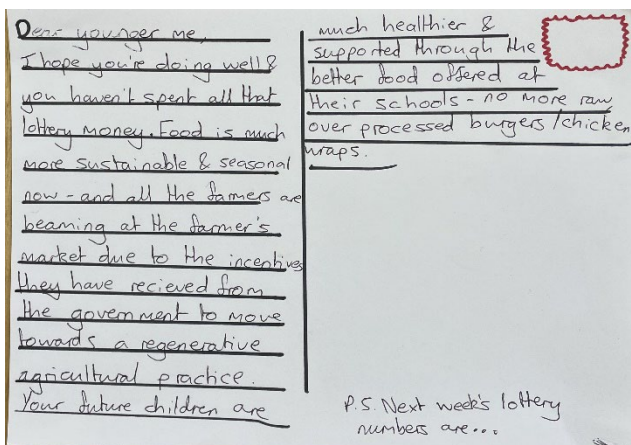 Dear younger me,
I hope you're doing well &
you haven't spent all that
lottery money. Food is much
more sustainable & seasonal
now - and all the farmers are
beaming at the farmer's
market due to the incentives
they have recieved from
the government to move
towards a regenerative
agricultural practice.
Your future children are
much healthier &
supported through the
better food offered at
their schools - no more raw
over processed burgers/chicken
wraps.
P.S. Next week's lottery
numbers are...